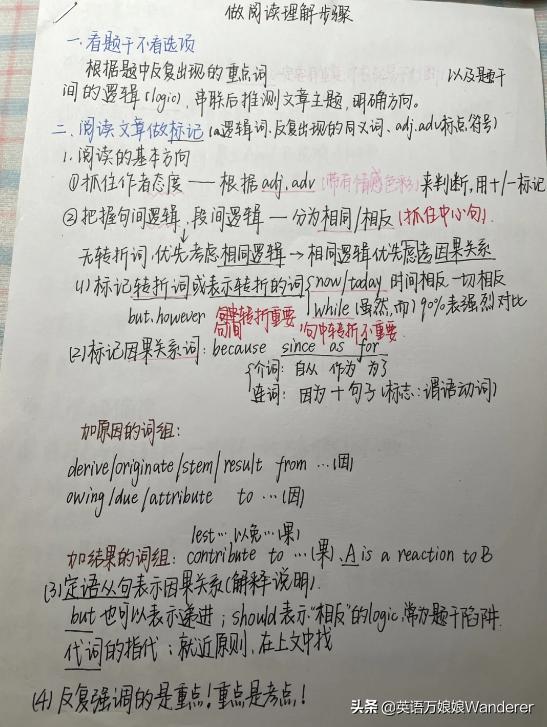 做阅读理解步骤
一.看题干不看选项
根据题中反复出现的重点词 以及题干
间的逻辑(logic),串联后推测文章主题,明确方向。
二.阅读文章做标记(a逻辑词.反复出现的同义词、adj.adv标点符号)
1.阅读的基本方向
①抓住作者态度——根据adj.adv(带有情感色彩)来判断,用+/-标记
②把握句间逻辑、段间逻辑—分为相同/相反(抓住中心句).
无转折词,优先考虑相同逻辑→相同逻辑优先虑考因果关系
(1)标记转折词或表示转折的词{now/today 时间相反一切相反
but.however 句间转折重要 while(虽然,而)90%表强烈对比
句中转折不重要
(2)标记因果关系词:because since as for
介词:自从 作为 为了
连词:因为+句子(标志:谓语动词)
加原因的词组:
derive/originate/stem/result from …(因)
owing/due/attribute to …(因)
lest…以免…(果)
加结果的词组:contribute to …(果).A is a reaction to B
(3)定语从句表示因果关系(解释说明).
but也可以表示递进;should表示"相反"的logic,常为题干陷阱.
代词的指代:就近原则,在上文中找
(4)反复强调的是重点!重点是考点!
头条 @英语万娘娘Wanderer